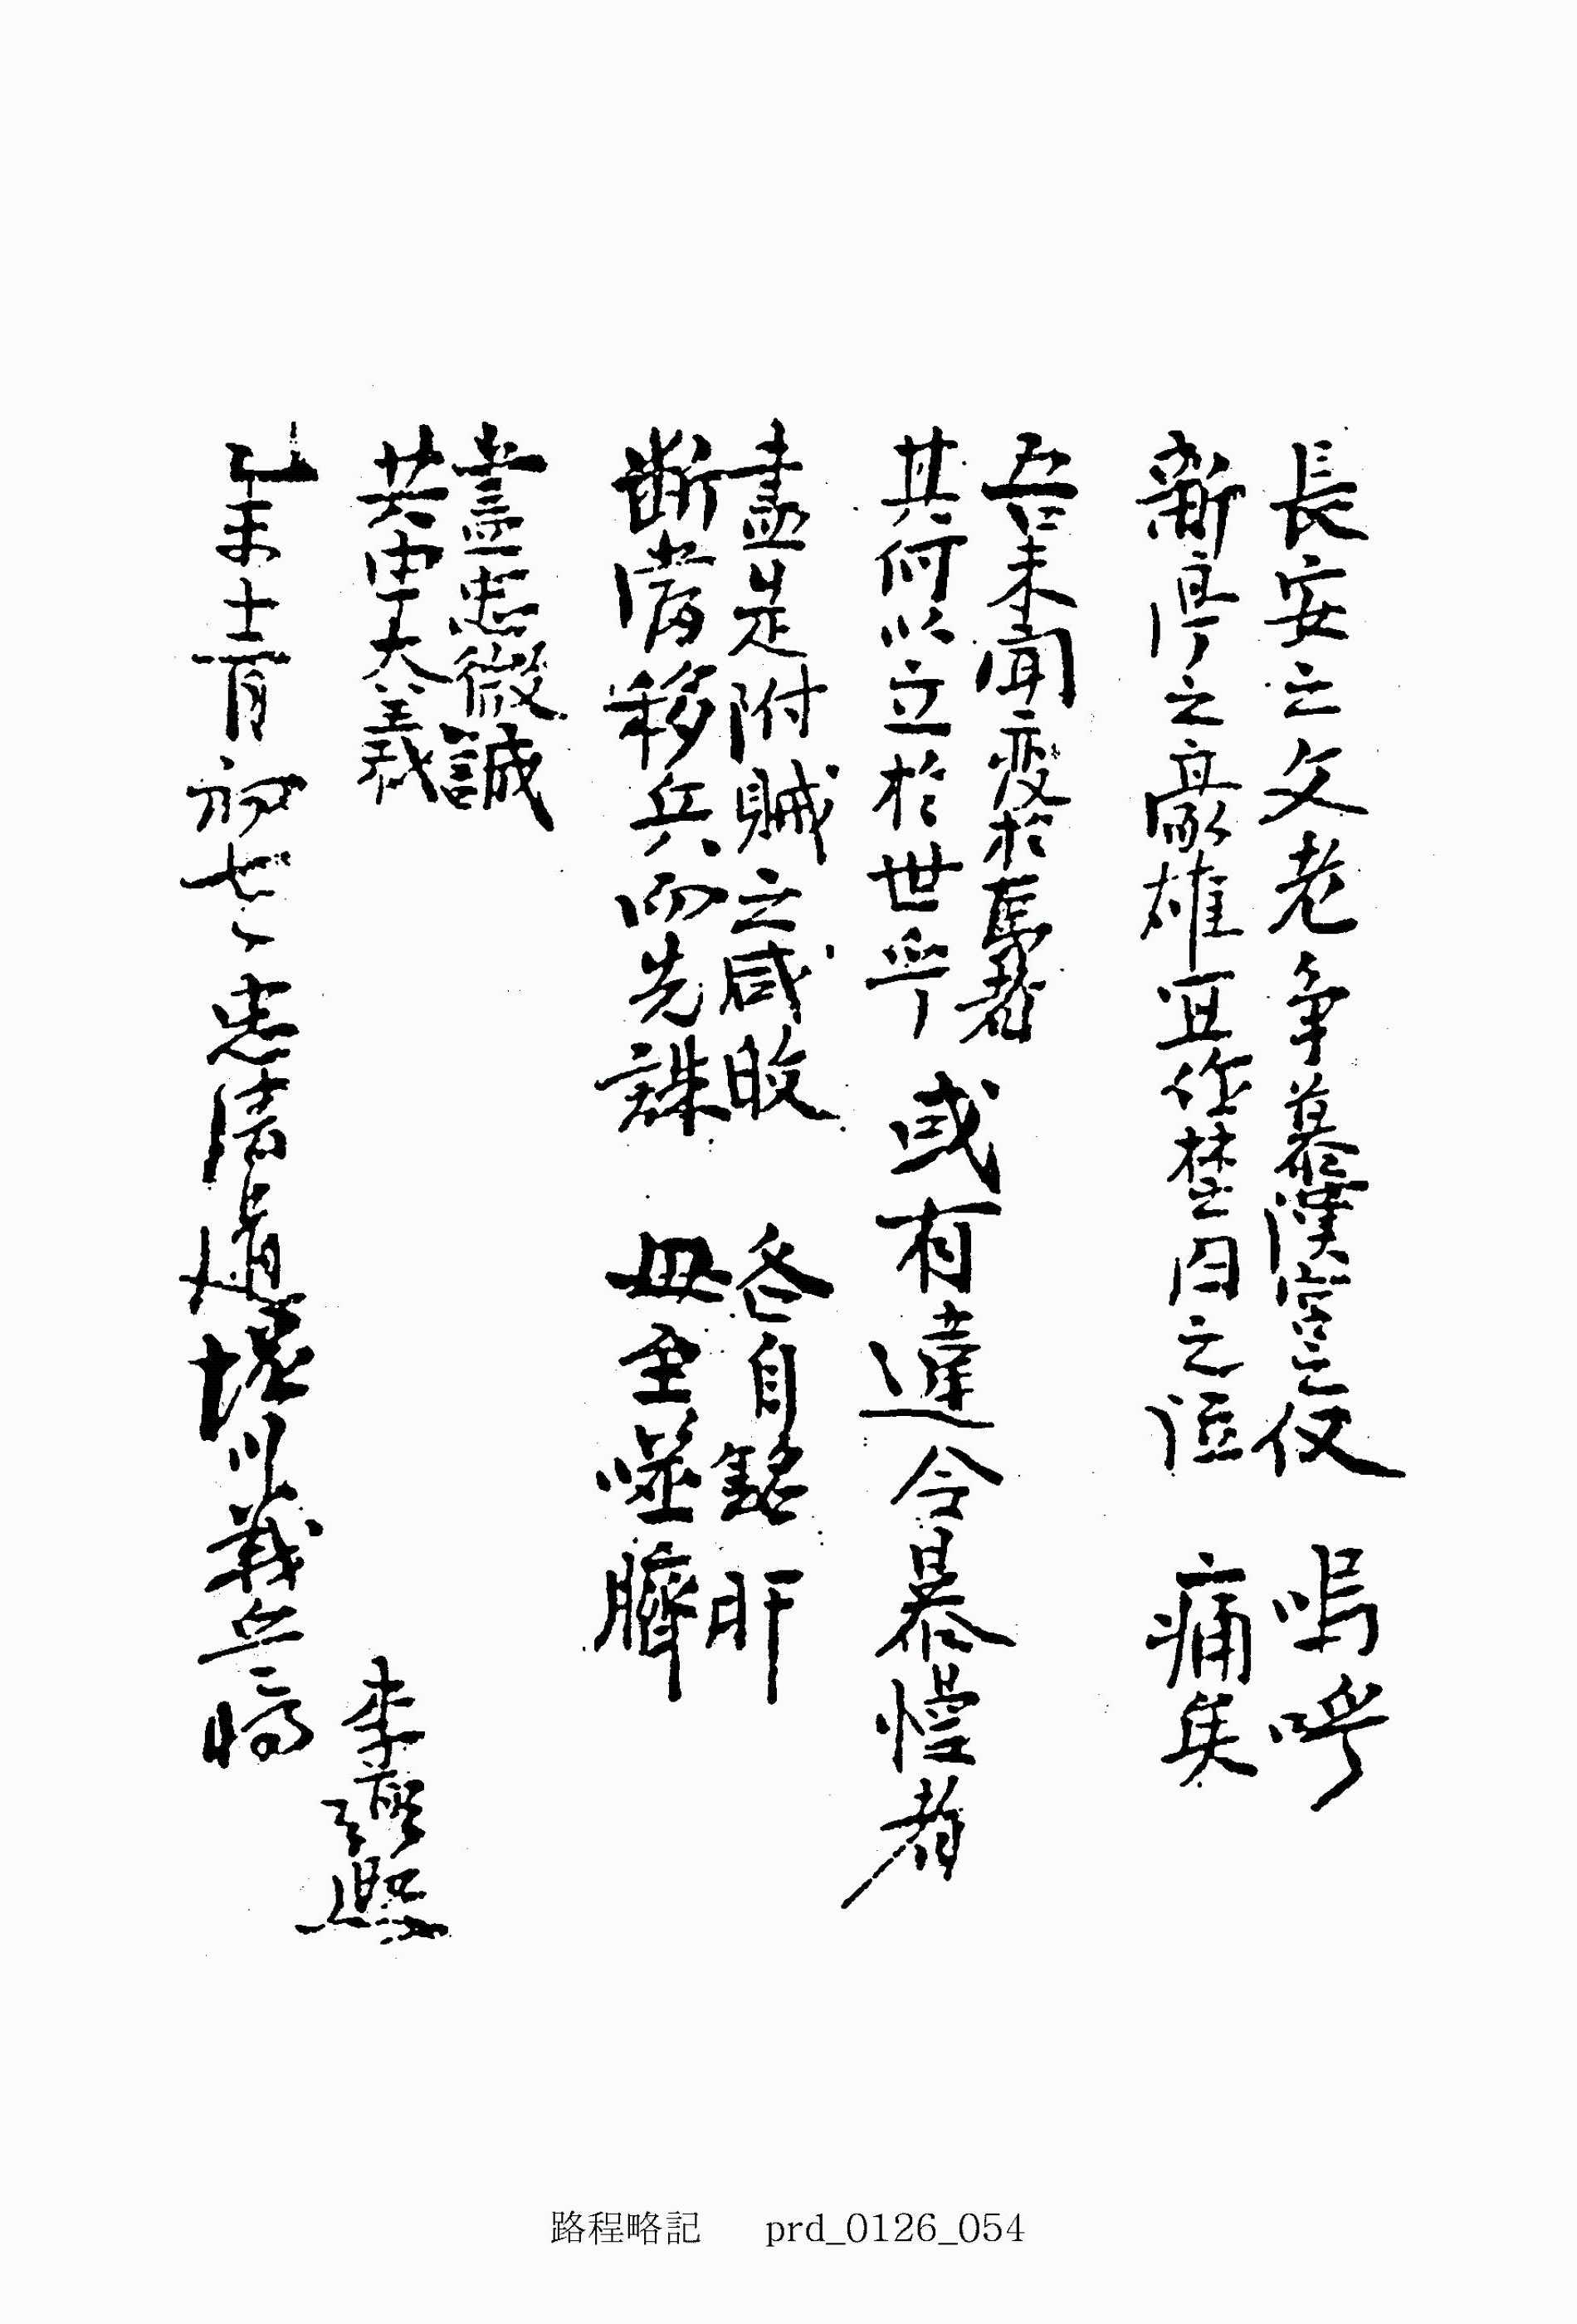 長安之父老爭慕漢宮之仪 嗚呼
新亭之豪雄宜作楚囚之泣 痛矣
吾未聞變於夷者
其何以立於世乎 或有違令暴慢者
盡是附賊之咸 各自銘肝
斷當移兵而先誅 毋至噬臍
盡忠微誠
共申大義
李 熙
乙未十二月初七日忠清道堤川義兵
路程略記 prd_0126_054